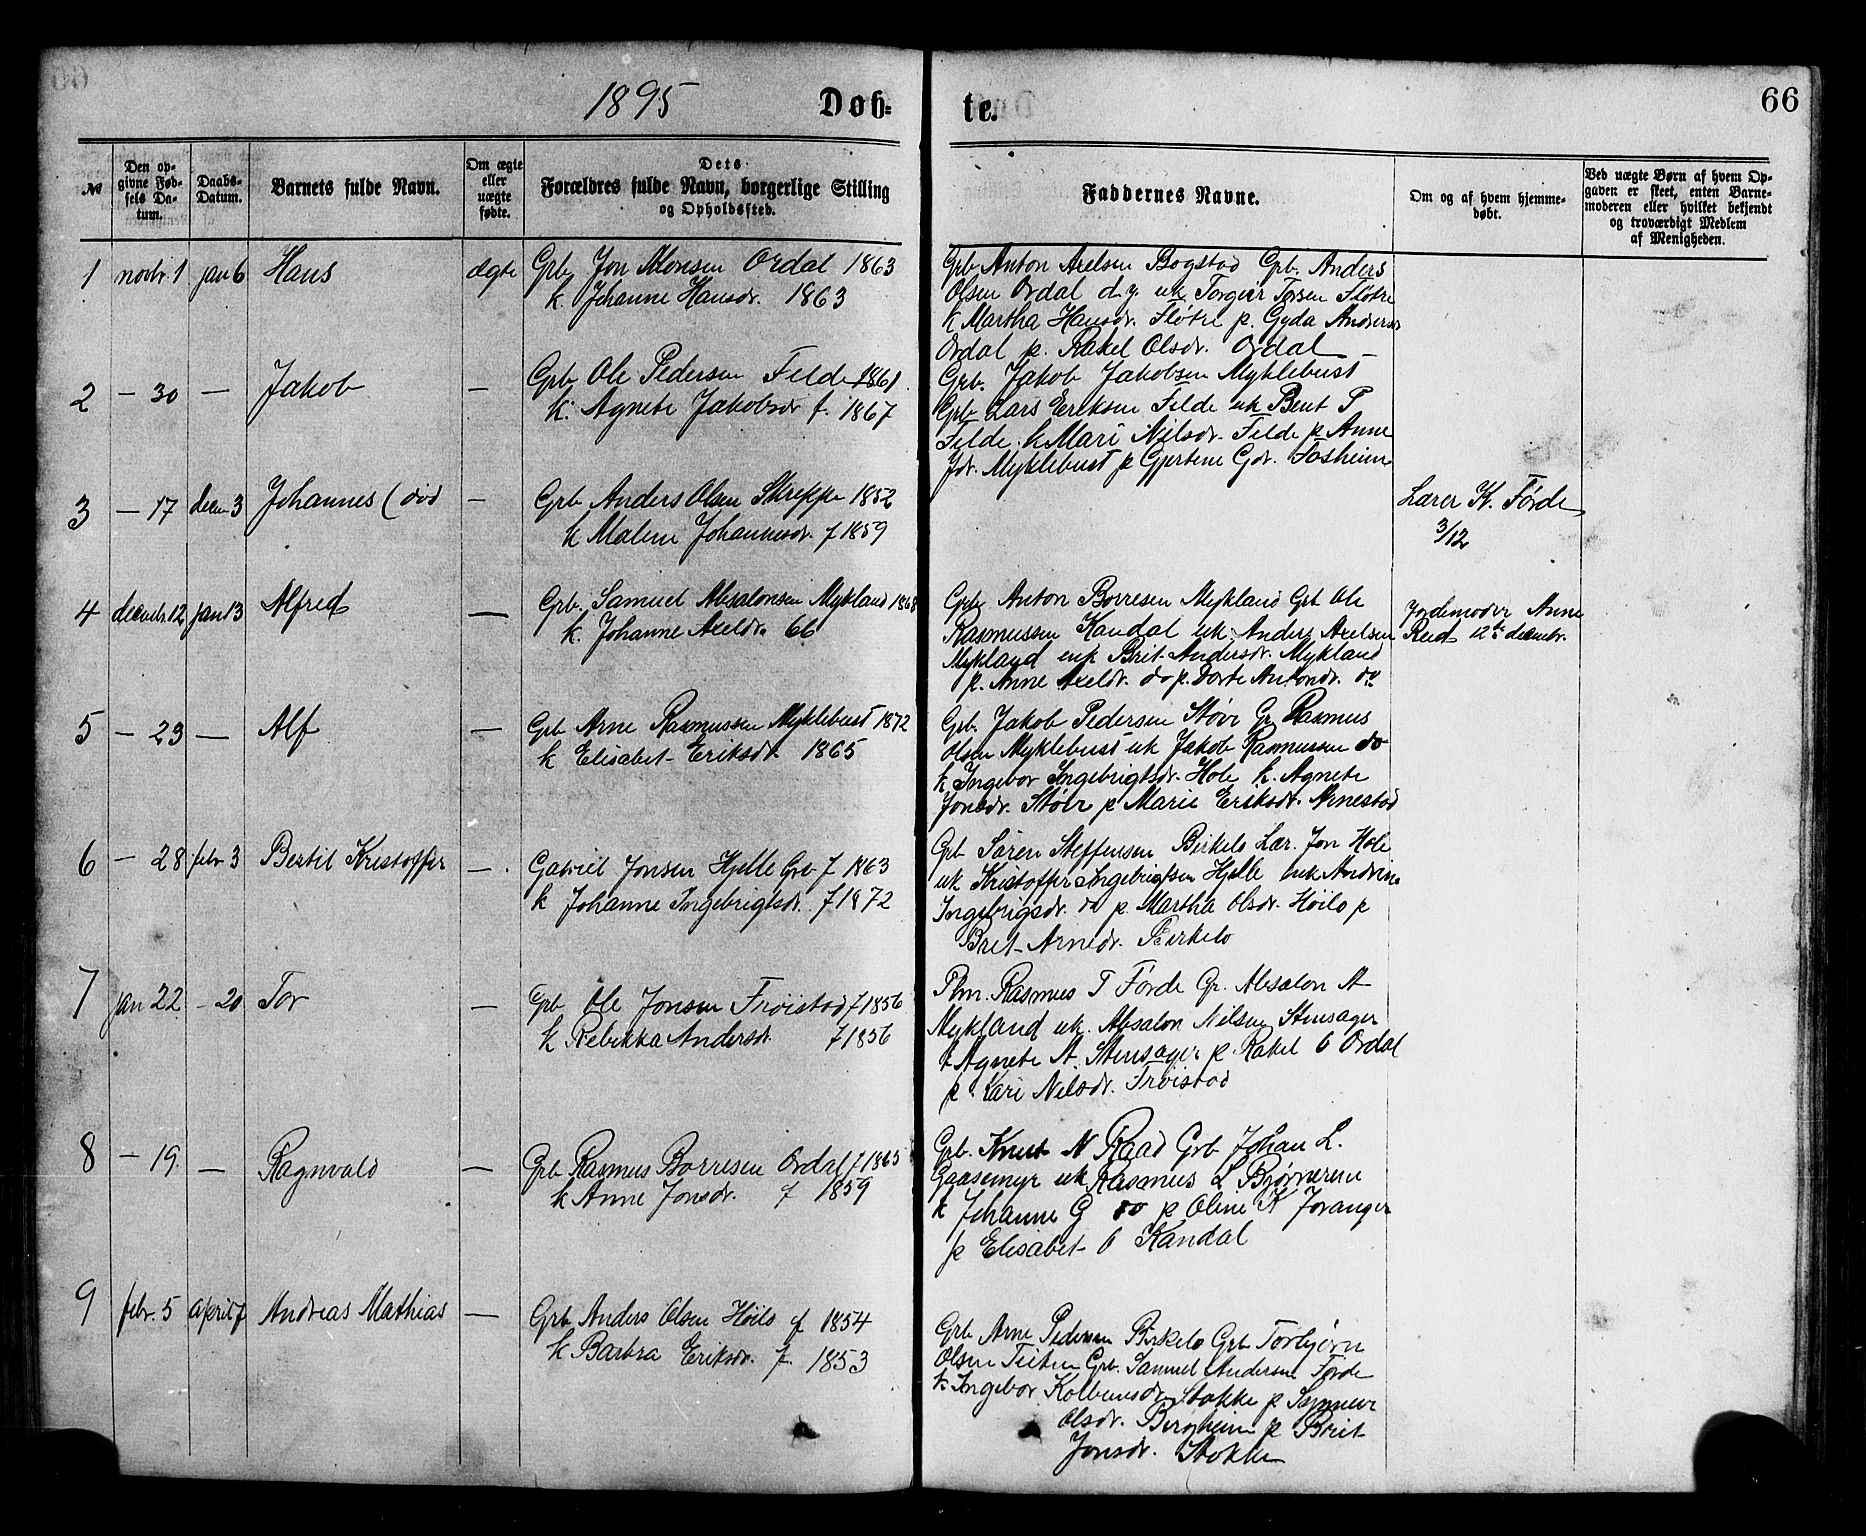 1895 Døb- te. 66
№
Den op-
givne Fød-
sels Da-
tum.
Daabs-
Datum.
Barnets fulde Navn.
Om ægte
eller
uægte
fødte.
Dets
Forældres fulde Navn, borgerlige Stilling
og Opholdssted.
Faddernes Navne.
Om og af hvem hjemme-
døbt.
Ved uægte Børn af hvem Op-
gaven er skeet, enten Barne-
moderen eller hvilket bekjendt
og troværdigt Medlem
af Menigheden.
1 novbr 1 jan 6 Hans ægte Grb Jon Monsen Ordal 1863
k Johanne Hansdr. 1863
Grb Anton Axelsen Bogstad Grb. Anders
Olsen Ordal d.y. uk Torgeir Torsen Fløtre
k Martha Hansdr. Fløtre p. Gyda Andersdr
Ordal p. Rakel Olsdr. Ordal
2 — 30 — Jakob — Grb Ole Pedersen Felde 1861.
k. Agnete Jakobsdr f. 1867
Grb. Jakob Jakobsen Myklebust
Grb Lars Eriksen Felde uk Bent P
Felde. k Mari Nilsdr. Felde p Anne
Jdr. Myklebust p Gjertine Gdr. Fosheim
3 — 17 decm 3 Johannes (død — Grb Anders Olsen Skreppe 1852
k Malene Johannesdr. f 1859
Lærer K. Førde
3/12
4 decmbr. 12 jan 13 Alfred — Grb. Samuel Absalonsen Mykland 1868
k. Johanne Axeldr. 66
Grb Anton Børresen Mykland Grb Ole
Rasmussen Kandal uk. Anders Axelsen
Mykland enk Brit Andersdr. Mykland
p. Anne Axeldr. do p. Dorte Antondr. do
Jordemoder Anne
Reed 12te decmbr.
5 — 23 — Alf — Grb Arne Rasmussen Myklebust 1872
k Elisabet Eriksdr. 1865
Grb. Jakob Pedersen Støve Gr Rasmus
Olsen Myklebust uk Jakob Rasmussen do
k Ingebor Ingebrigtsdr. Hole k. Agnete
Jonsdr. Støve p Marie Eriksdr. Arnestad
6 — 28 febr 3 Bertil Kristoffer — Gabriel Jonsen Hjelle Grb f 1863
k Johanne Ingebrigtsdr. f 1872
Grb Søren Steffensen Birkelo Lær. Jon Hole
uk Kristoffer Ingebrigtsen Hjelle enk Andrine
Ingebrigsdr. do p. Martha Olsdr. Høilo p
Brit Arnedr. Birkelo
7 jan 22 — 20 Tor — Grb Ole Jonsen Frøistad f 1856
k Rebekka Andersdr. f 1856
Plm. Rasmus T Førde Gr. Absalon A
Mykland uk. Absalon Nilsen Stensager
k Agnete A. Stensager p Rakel O Ordal
p. Kari Nilsdr. Frøistad
8 — 19 — Ragnvald — Grb Rasmus Børresen Ordal f 1865
k Anne Jonsdr. f 1859
Grb. Knut N Raad Grb Johan L.
Gaasemyr uk Rasmus L Bjørnereim
k Johanne G do p Oline K Joranger
p Elisabet O Kandal
9 febr. 5 april 7 Andreas Mathias — Grb Anders Olsen Høilo f 1854
k Barbra Eriksdr. f. 1853
Grb Arne Pedersen Birkelo Grb Torbjørn
Olsen Grb. Samuel Andersen Førde
k Ingebor Kolbeinsdr Stokke p Synneve
Olsdr. Bergheim p Brit
Jonsdr. Stokke